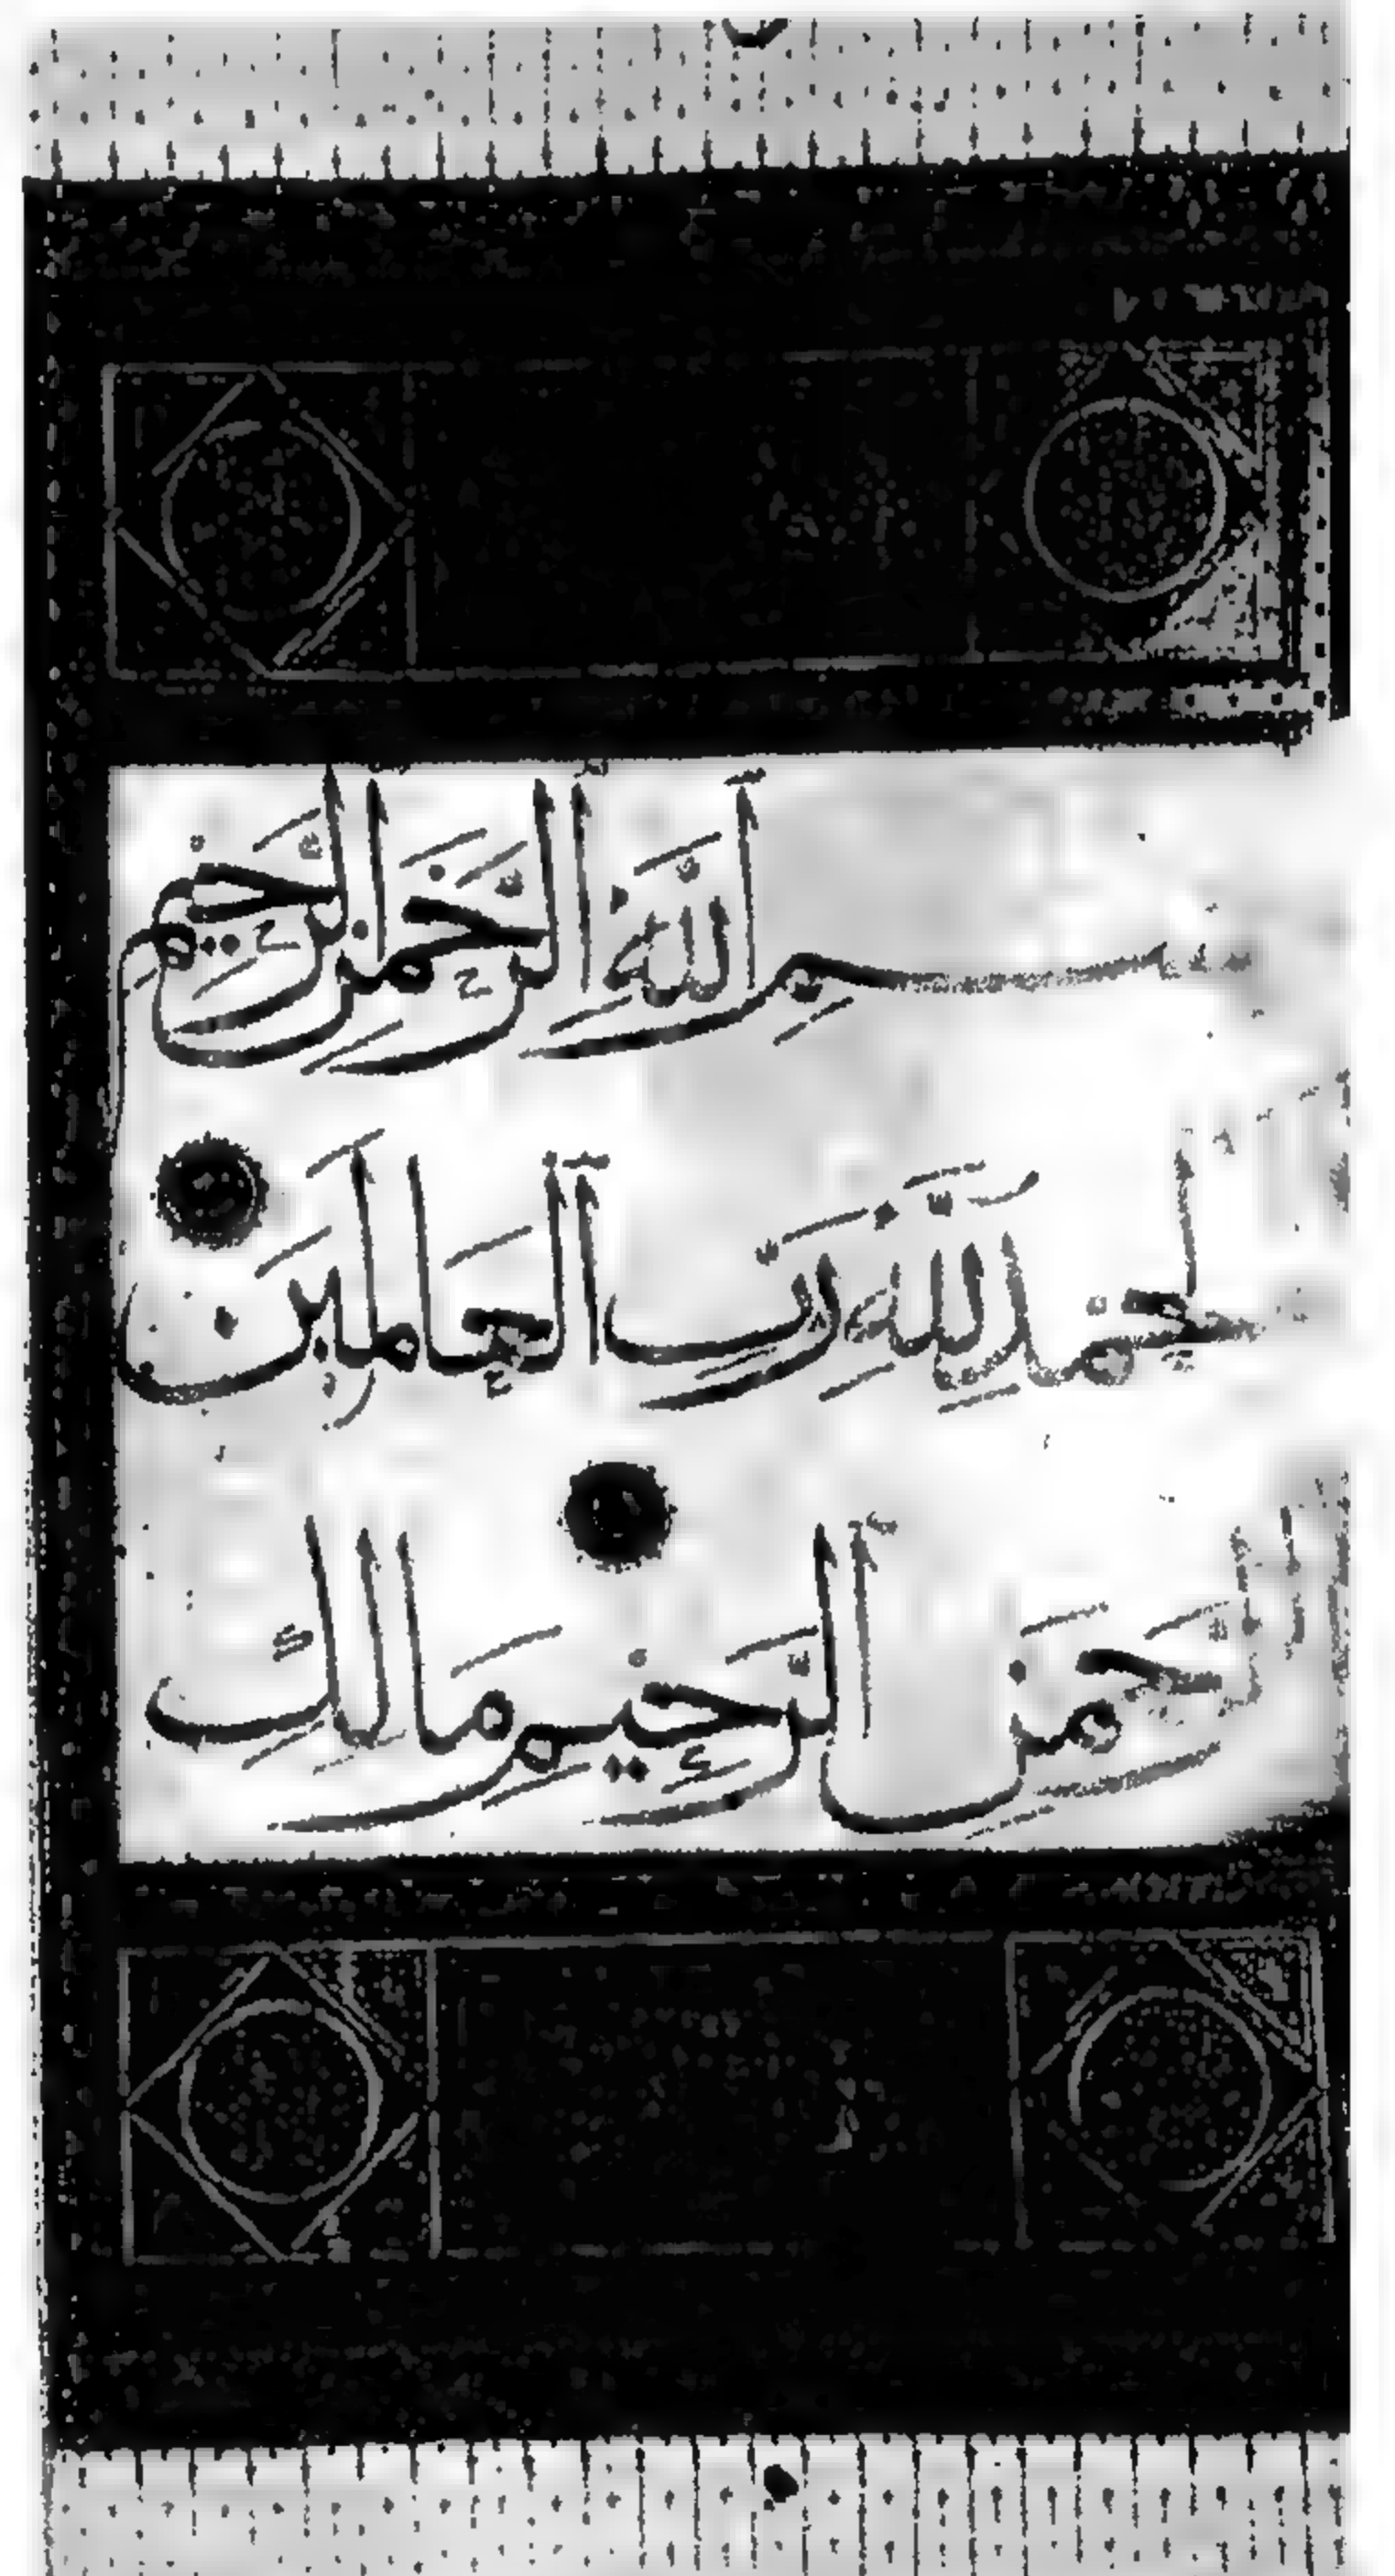 بِسْمِ ٱللَّهِ ٱلرَّحْمَنِ ٱلرَّحِيمِ
ٱلْحَمْدُ لِلَّهِ رَبِّ ٱلْعَالَمِينَ
ٱلرَّحْمَنِ ٱلرَّحِيمِ مَالِكِ